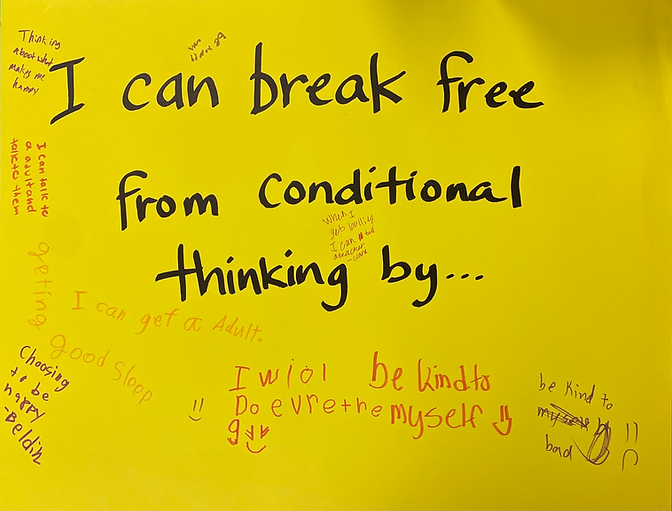 I can break free
from conditional
thinking by...
Thinking
about what
makes me
happy
I can talk to
a adult and
talk to them
When I
get bullied
I can
a teacher
getting
good Sleep
I can get a Adult.
Choosing
to be
happy
-Beldin
I wiol
Do evrethe
g
be kind to
myself
be kind to
bad